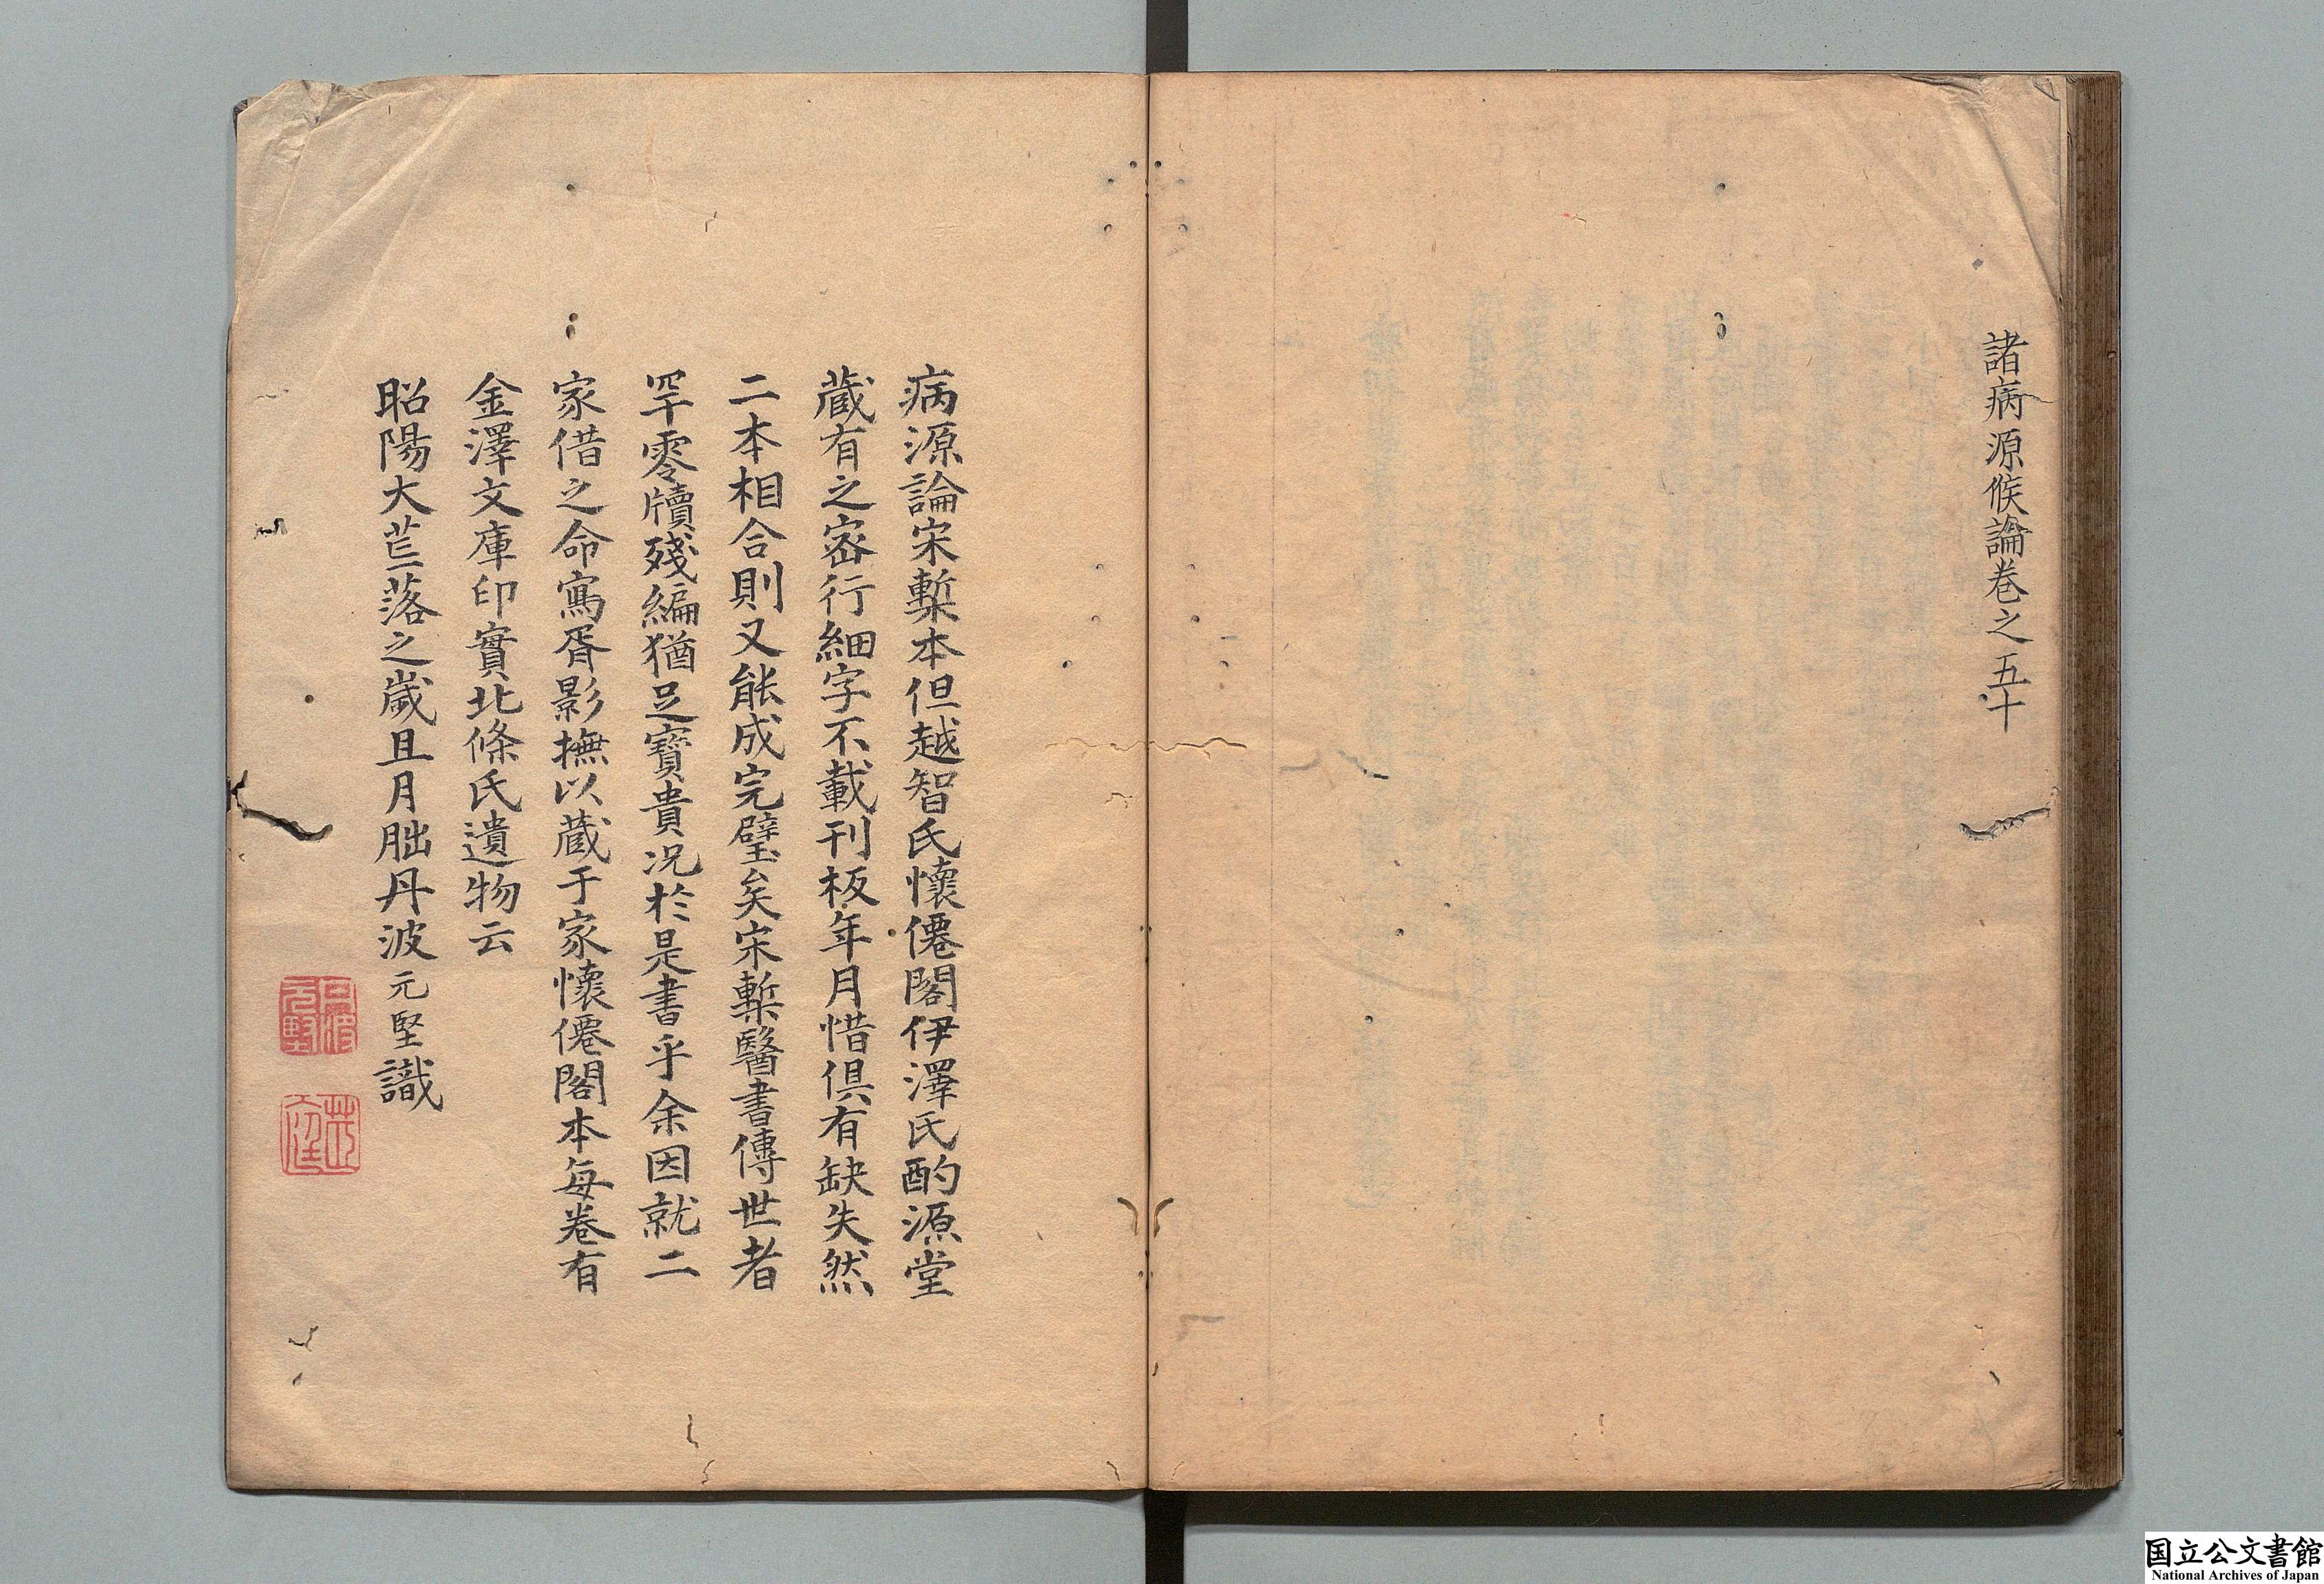 諸病源候論卷之五十
病源論宋槧本但越智氏懷僊閣伊澤氏酌源堂
藏有之密行細字不載刊板年月惜俱有缺失然
二本相合則又能成完璧矣宋槧醫書傳世者
罕零牘殘編猶足寶貴况於是書乎余因就二
家借之命寫胥影撫以藏于家懷僊閣本每卷有
金澤文庫印實北條氏遺物云
昭陽大芒落之歲且月朏丹波元堅識
丹波元堅
茝庭
国立公文書館
National Archives of Japan